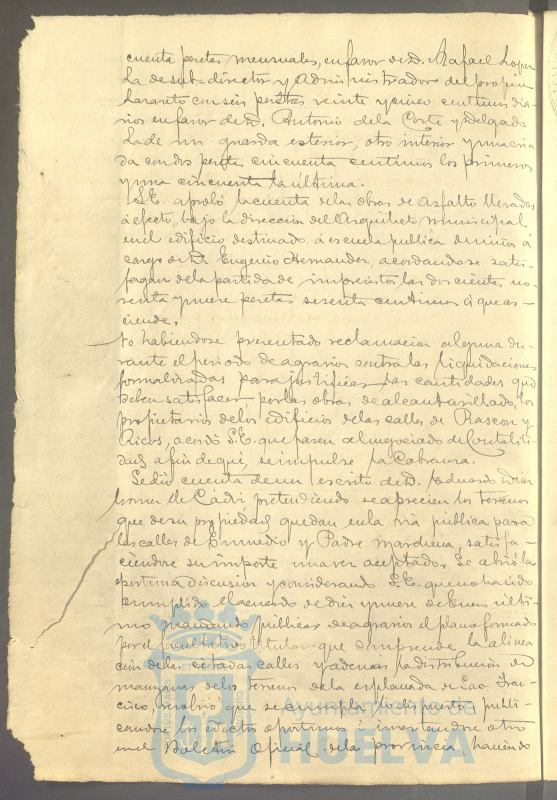 cuenta pesetas mensuales, en favor de D. Rafael Lopez
La de sub-director y Administrador del propio
Lazareto con seis pesetas veinte y cinco centimos dia-
rios en favor de D. Antonio de la Corte y Delgado
La de un guarda exterior, otro interior y una cria-
da con dos pesetas cincuenta centimos los primeros
y una cincuenta la última.
S.E. aprobó la cuenta de las obras de asfalto llevadas
á efecto, bajo la direccion del Arquitecto municipal
en el edificio destinado á escuela publica de niños á
cargo de D. Eugenio Hernandez, acordandose satis-
fagan de la partida de imprevistos las dos cientas no-
venta y nueve pesetas sesenta centimos á que as-
ciende.
No habiendose presentado reclamacion alguna du-
rante el periodo de agravios contra las liquidaciones
formalizadas para justificar las cantidades que
deben satisfacer por las obras de alcantarillado, los
propietarios de los edificios de las calles de Rascon y
Ricos, acordó S.E. que pasen al negociado de Contabili-
dad á fin de que se impulse la cobranza.
Se dió cuenta de un escrito de D. Eduardo Diaz
de Cádiz pretendiendo se aprecien los terrenos
que de su propiedad quedan en la via publica para
las calles de Enmedio y Padre Marchena, satisfa-
ciendose su importe una vez aceptado. Se abrió la
oportuna discusion y considerando S.E. que no ha sido
cumplido el acuerdo de diez y nueve de Enero últi-
mo mandando publicar de agravios el plano formado
por el facultativo titular que comprende la alinea-
cion de las citadas calles y ademas la distribucion de
manzanas de los terrenos de la esplanada de San Fran-
cisco, resolvió que se cumpla lo dispuesto publi-
candose los edictos oportunos é insertandose otro
en el Boletin Oficial de la provincia, haciendo
Ayuntamiento de
HUELVA